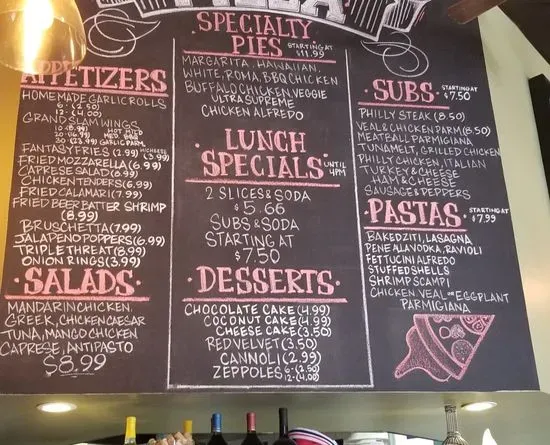 PIZZA
APPETIZERS
HOMEMADE GARLIC ROLLS
6-(2.50)
12-(4.00)
GRAND SLAM WINGS
10 (8.99) HOT MED
20 (16.99) MILD BBQ
30 (23.99) GARLIC PARM
FANTASY FRIES (2.99) W/CHEESE (3.99)
FRIED MOZZARELLA (6.99)
CAPRESE SALAD (8.99)
CHICKEN TENDERS (6.99)
FRIED CALAMARI (7.99)
FRIED BEER BATTER SHRIMP
(8.99)
BRUSCHETTA (7.99)
JALAPENO POPPERS (6.99)
TRIPLE THREAT (8.99)
ONION RINGS (3.99)
SALADS
MANDARIN CHICKEN,
GREEK, CHICKEN CAESAR
TUNA, MANGO CHICKEN
CAPRESE, ANTIPASTO
$8.99
SPECIALTY
PIES STARTING AT $11.99
MARGARITA, HAWAIIAN,
WHITE, ROMA, BBQ CHICKEN
BUFFALO CHICKEN, VEGGIE
ULTRA SUPREME
CHICKEN ALFREDO
LUNCH
SPECIALS UNTIL 4PM
2 SLICES & SODA
$5.66
SUBS & SODA
STARTING AT
$7.50
DESSERTS
CHOCOLATE CAKE (4.99)
COCONUT CAKE (4.99)
CHEESE CAKE (3.50)
RED VELVET (3.50)
CANNOLI (2.99)
ZEPPOLES 6-(2.50)
12-(4.00)
SUBS STARTING AT $7.50
PHILLY STEAK (8.50)
VEAL & CHICKEN PARM (8.50)
MEATBALL PARMIGIANA
TUNA MELT, GRILLED CHICKEN
PHILLY CHICKEN, ITALIAN
TURKEY & CHEESE
HAM & CHEESE
SAUSAGE & PEPPERS
PASTAS STARTING AT $7.99
BAKED ZITI, LASAGNA
PENE ALLA VODKA, RAVIOLI
FETTUCINI ALFREDO
STUFFED SHELLS
SHRIMP SCAMPI
CHICKEN VEAL OR EGGPLANT
PARMIGIANA